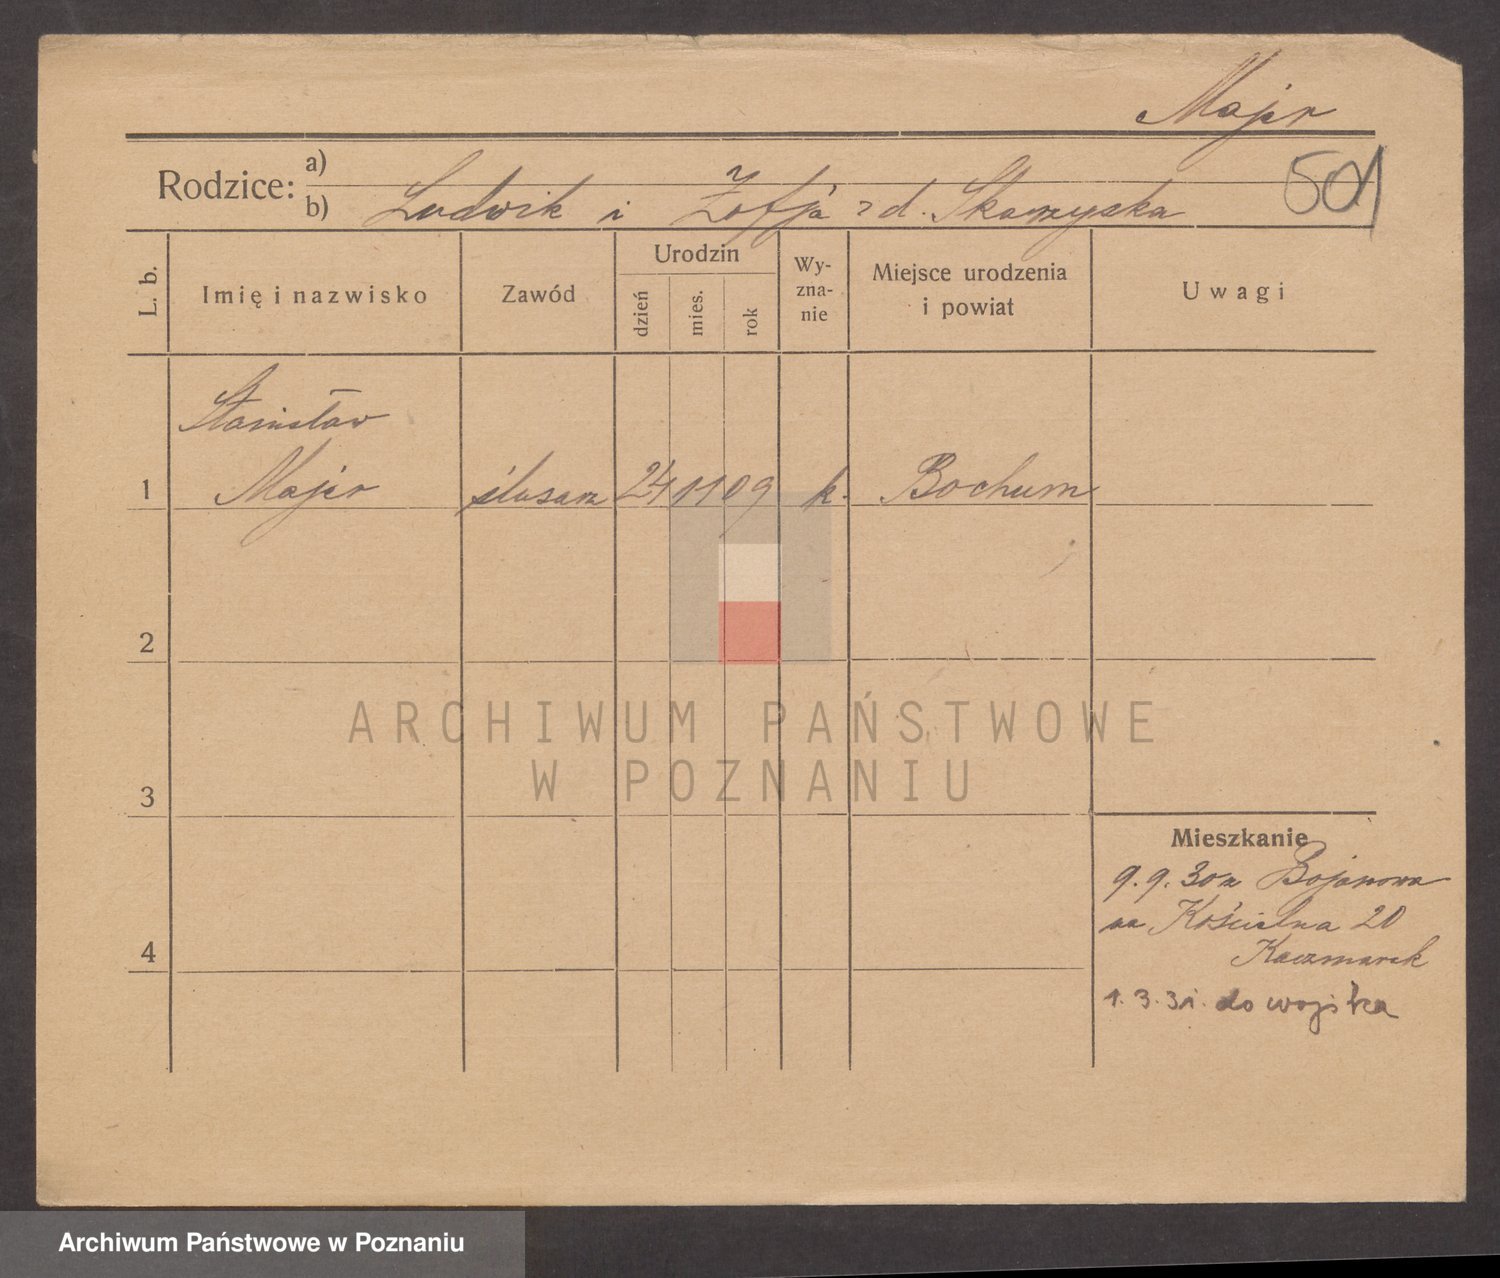 Majer
Rodzice: a)
b) Ludwik i Zofja z d. Skarzyska
501
L. b.
Imię i nazwisko
Zawód
Urodzin
dzień
mies.
rok
Wy-
zna-
nie
Miejsce urodzenia
i powiat
Uwagi
Stanisław
1 Majer ślusarz 24 11 09 k. Bochum
2
3
4
Mieszkanie
9. 9. 30 z Bojanowa
na Kościelna 20
Kaczmarek
1. 3. 31. do wojska
ARCHIWUM PAŃSTWOWE
W POZNANIU
Archiwum Państwowe w Poznaniu